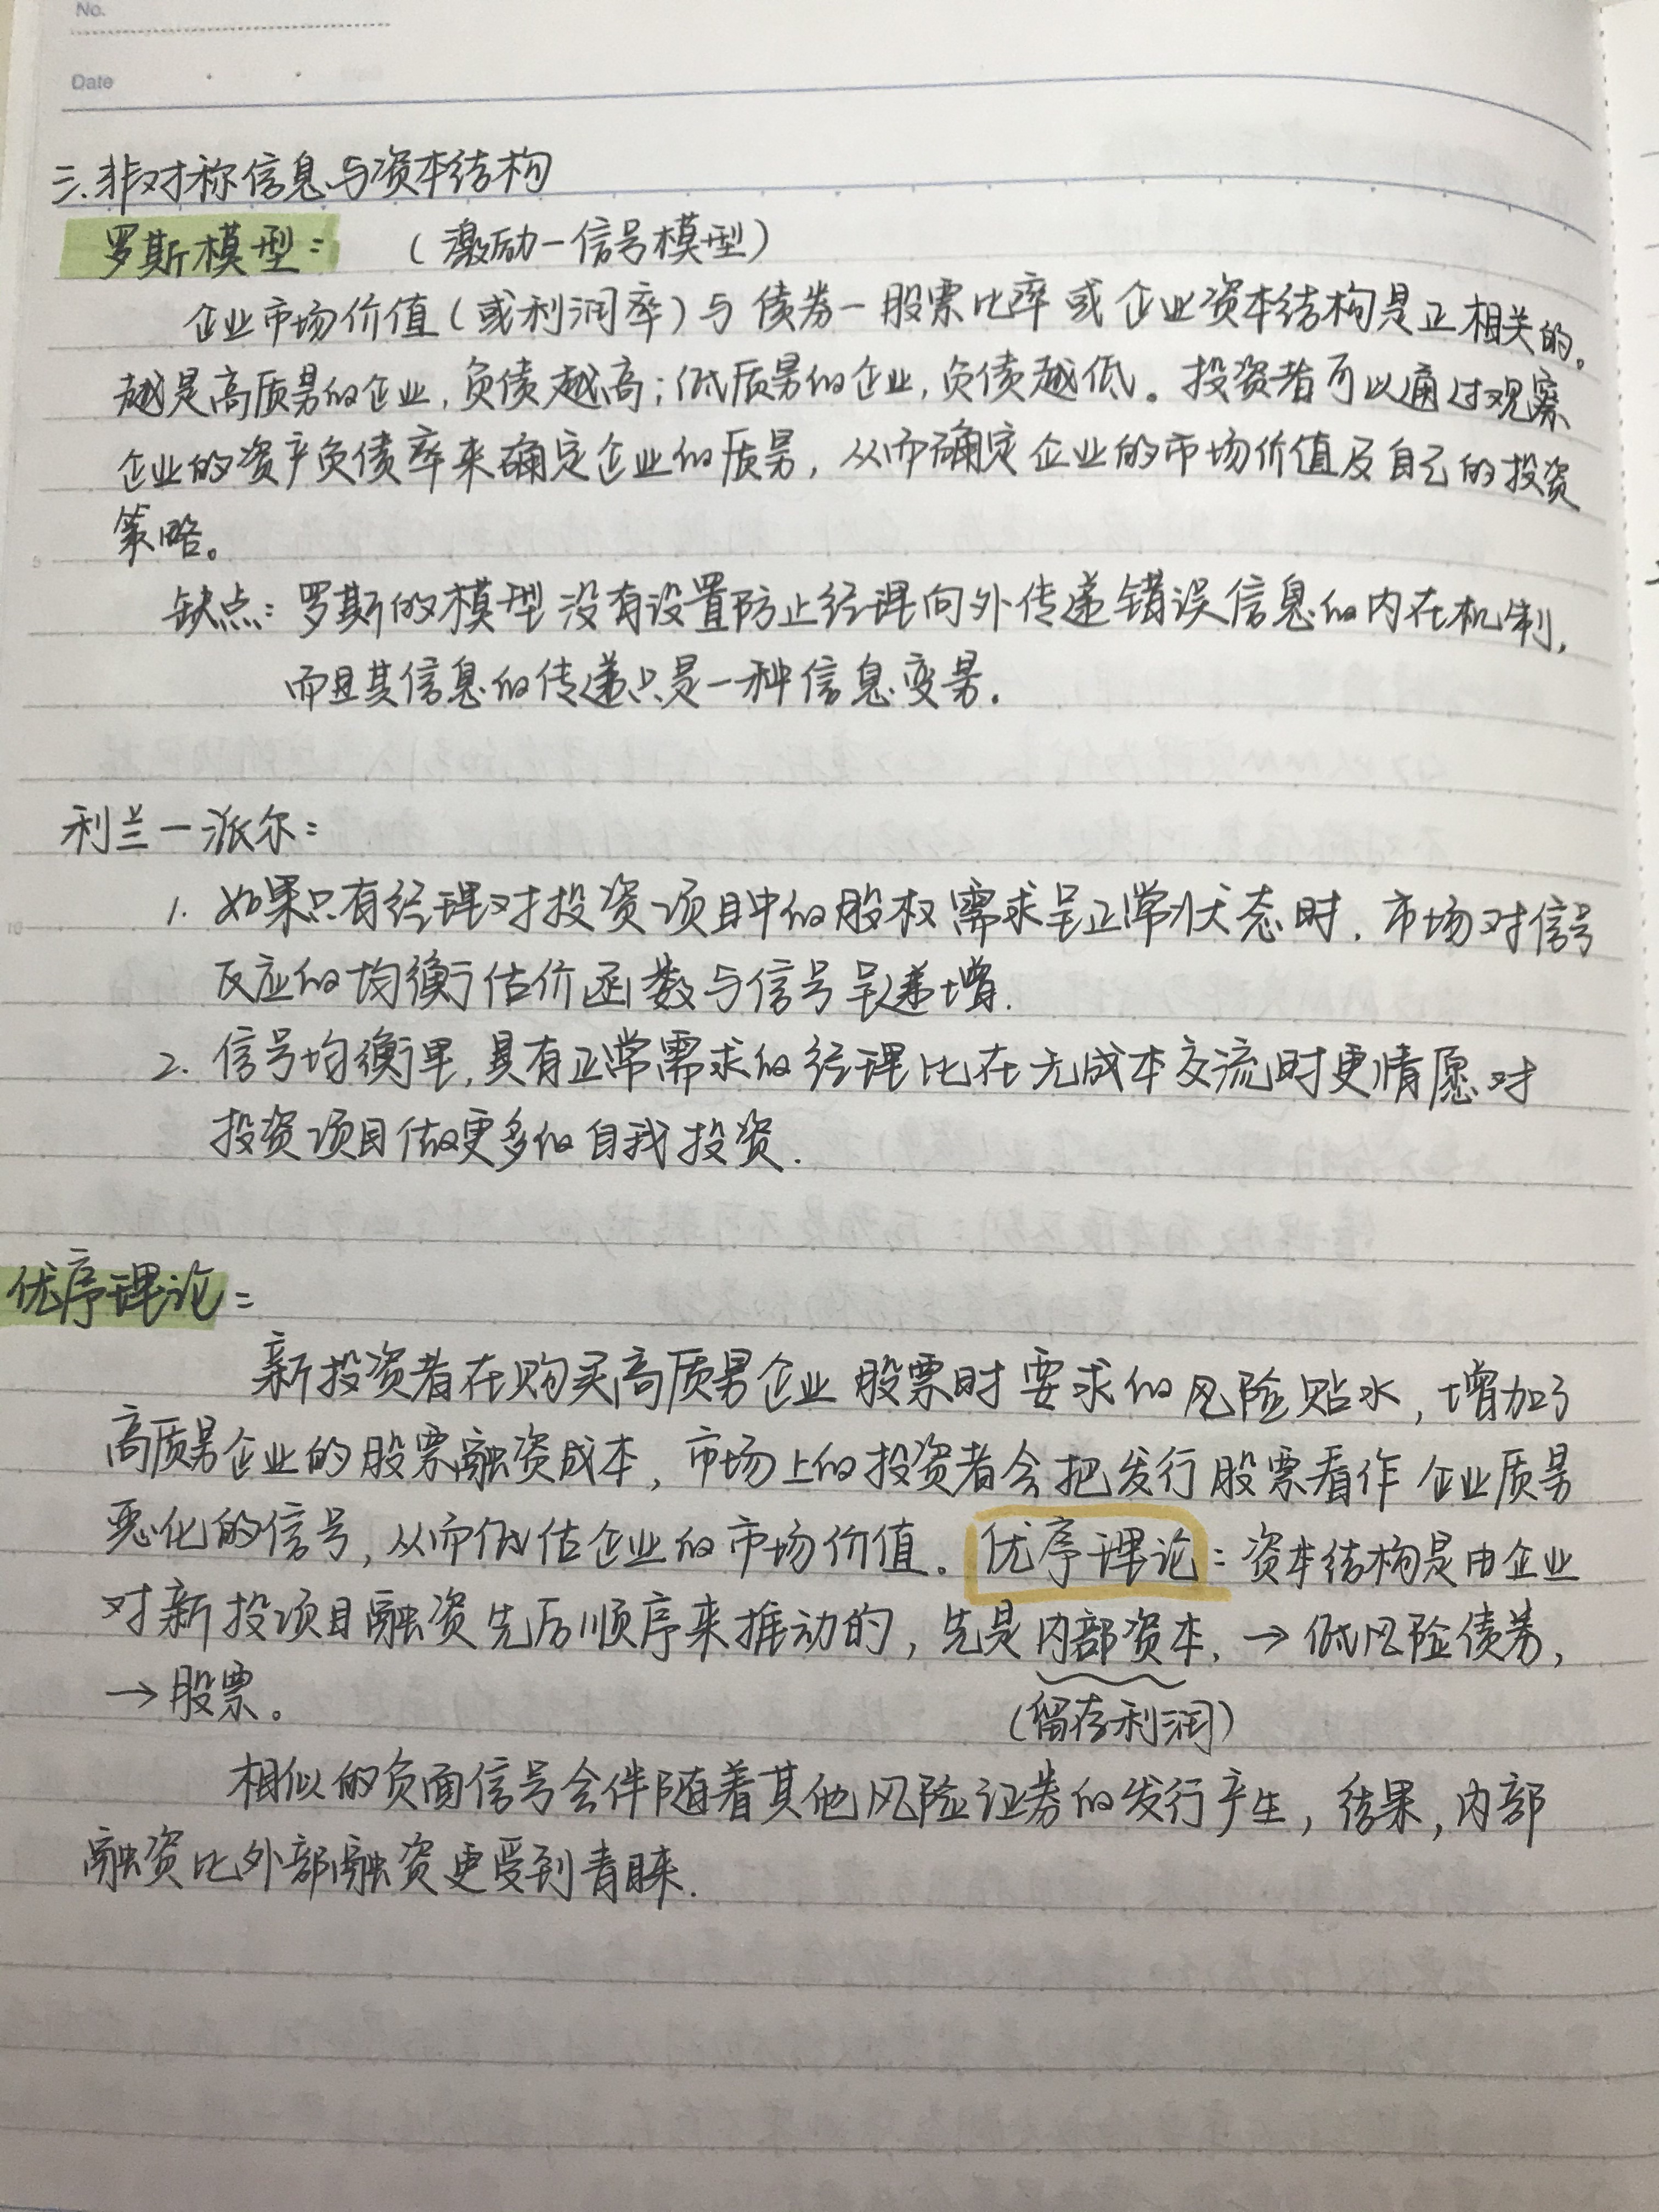 No.
Date
三.非对称信息与资本结构
罗斯模型: (激励-信号模型)
企业市场价值(或利润率)与债券-股票比率或企业资本结构是正相关的。
越是高质量的企业,负债越高;低质量的企业,负债越低。投资者可以通过观察
企业的资产负债率来确定企业的质量,从而确定企业的市场价值及自己的投资
策略。
缺点:罗斯的模型没有设置防止经理向外传递错误信息的内在机制,
而且其信息的传递只是一种信息变量.
利兰-派尔:
1. 如果只有经理对投资项目中的股权需求呈正常状态时,市场对信号
反应的均衡估价函数与信号呈递增.
2. 信号均衡里,具有正常需求的经理比在无成本交流时更情愿对
投资项目做更多的自我投资.
优序理论:
新投资者在购买高质量企业股票时要求的风险贴水,增加了
高质量企业的股票融资成本,市场上的投资者会把发行股票看作企业质量
恶化的信号,从而低估企业的市场价值。优序理论:资本结构是由企业
对新投项目融资先后顺序来推动的,先是内部资本,→低风险债券,
→股票。 (留存利润)
相似的负面信号会伴随着其他风险证券的发行产生,结果,内部
融资比外部融资更受到青睐.
9
10